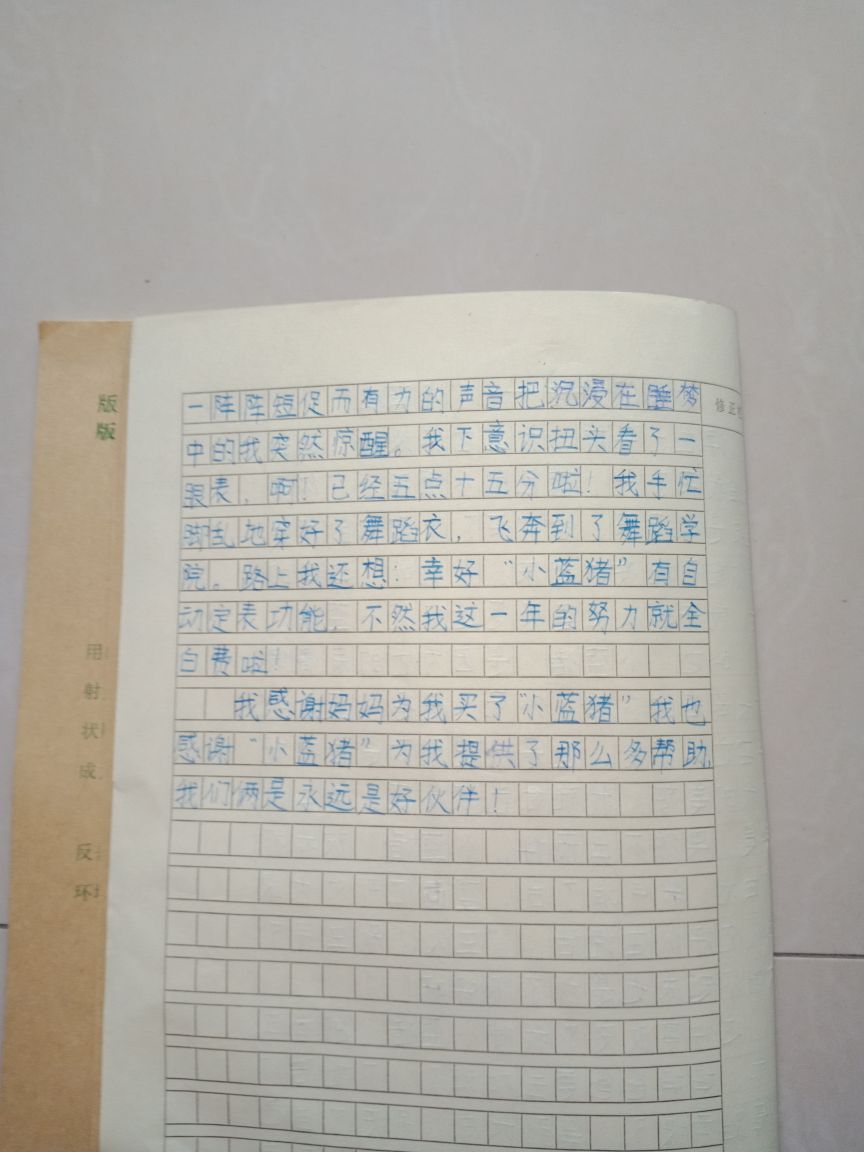 版
版
用
射
状
成
反
环
修正
一阵阵短促而有力的声音把沉浸在睡梦
中的我突然惊醒。我下意识扭头看了一
眼表，啊！已经五点十五分啦！我手忙
脚乱地穿好了舞蹈衣，飞奔到了舞蹈学
院。路上我还想：幸好“小蓝猪”有自
动定表功能，不然我这一年的努力就全
白费啦！
我感谢妈妈为我买了“小蓝猪”我也
感谢“小蓝猪”为我提供了那么多帮助
我们俩是永远是好伙伴！